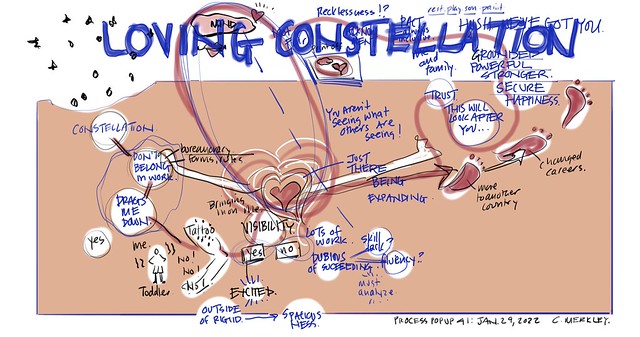 LOVING CONSTELLATION
MIND
Recklessness!?
rest. play son parent
HUSH WE'VE GOT YOU.
PACT
and family.
GROUNDED
POWERFUL
STRONGER.
SECURE
HAPPINESS.
TRUST
THIS WILL
LOOK AFTER
YOU...
You AREN'T
Seeing what
others are
seeing!
CONSTELLATION.
DON'T
BELONG
IN WORK.
bureaucracy
forms, rules
JUST
THERE
BEING
EXPANDING.
changed
careers.
move
to another
country
DRAGS
ME
DOWN.
Bringing
VISIBILITY.
yes
me.
Toddler
Tattoo
No!
No!
No!
Yes!
no
LOTS OF
WORK.
DUBIOUS
OF SUCCEEDING.
skill
lack?
fluency?
must
analyze.
EXCITED.
OUTSIDE
OF RIGID.
SPACIOUS
NESS.
PROCESS POPUP 41: JAN. 29, 2022 C. MERKLEY.